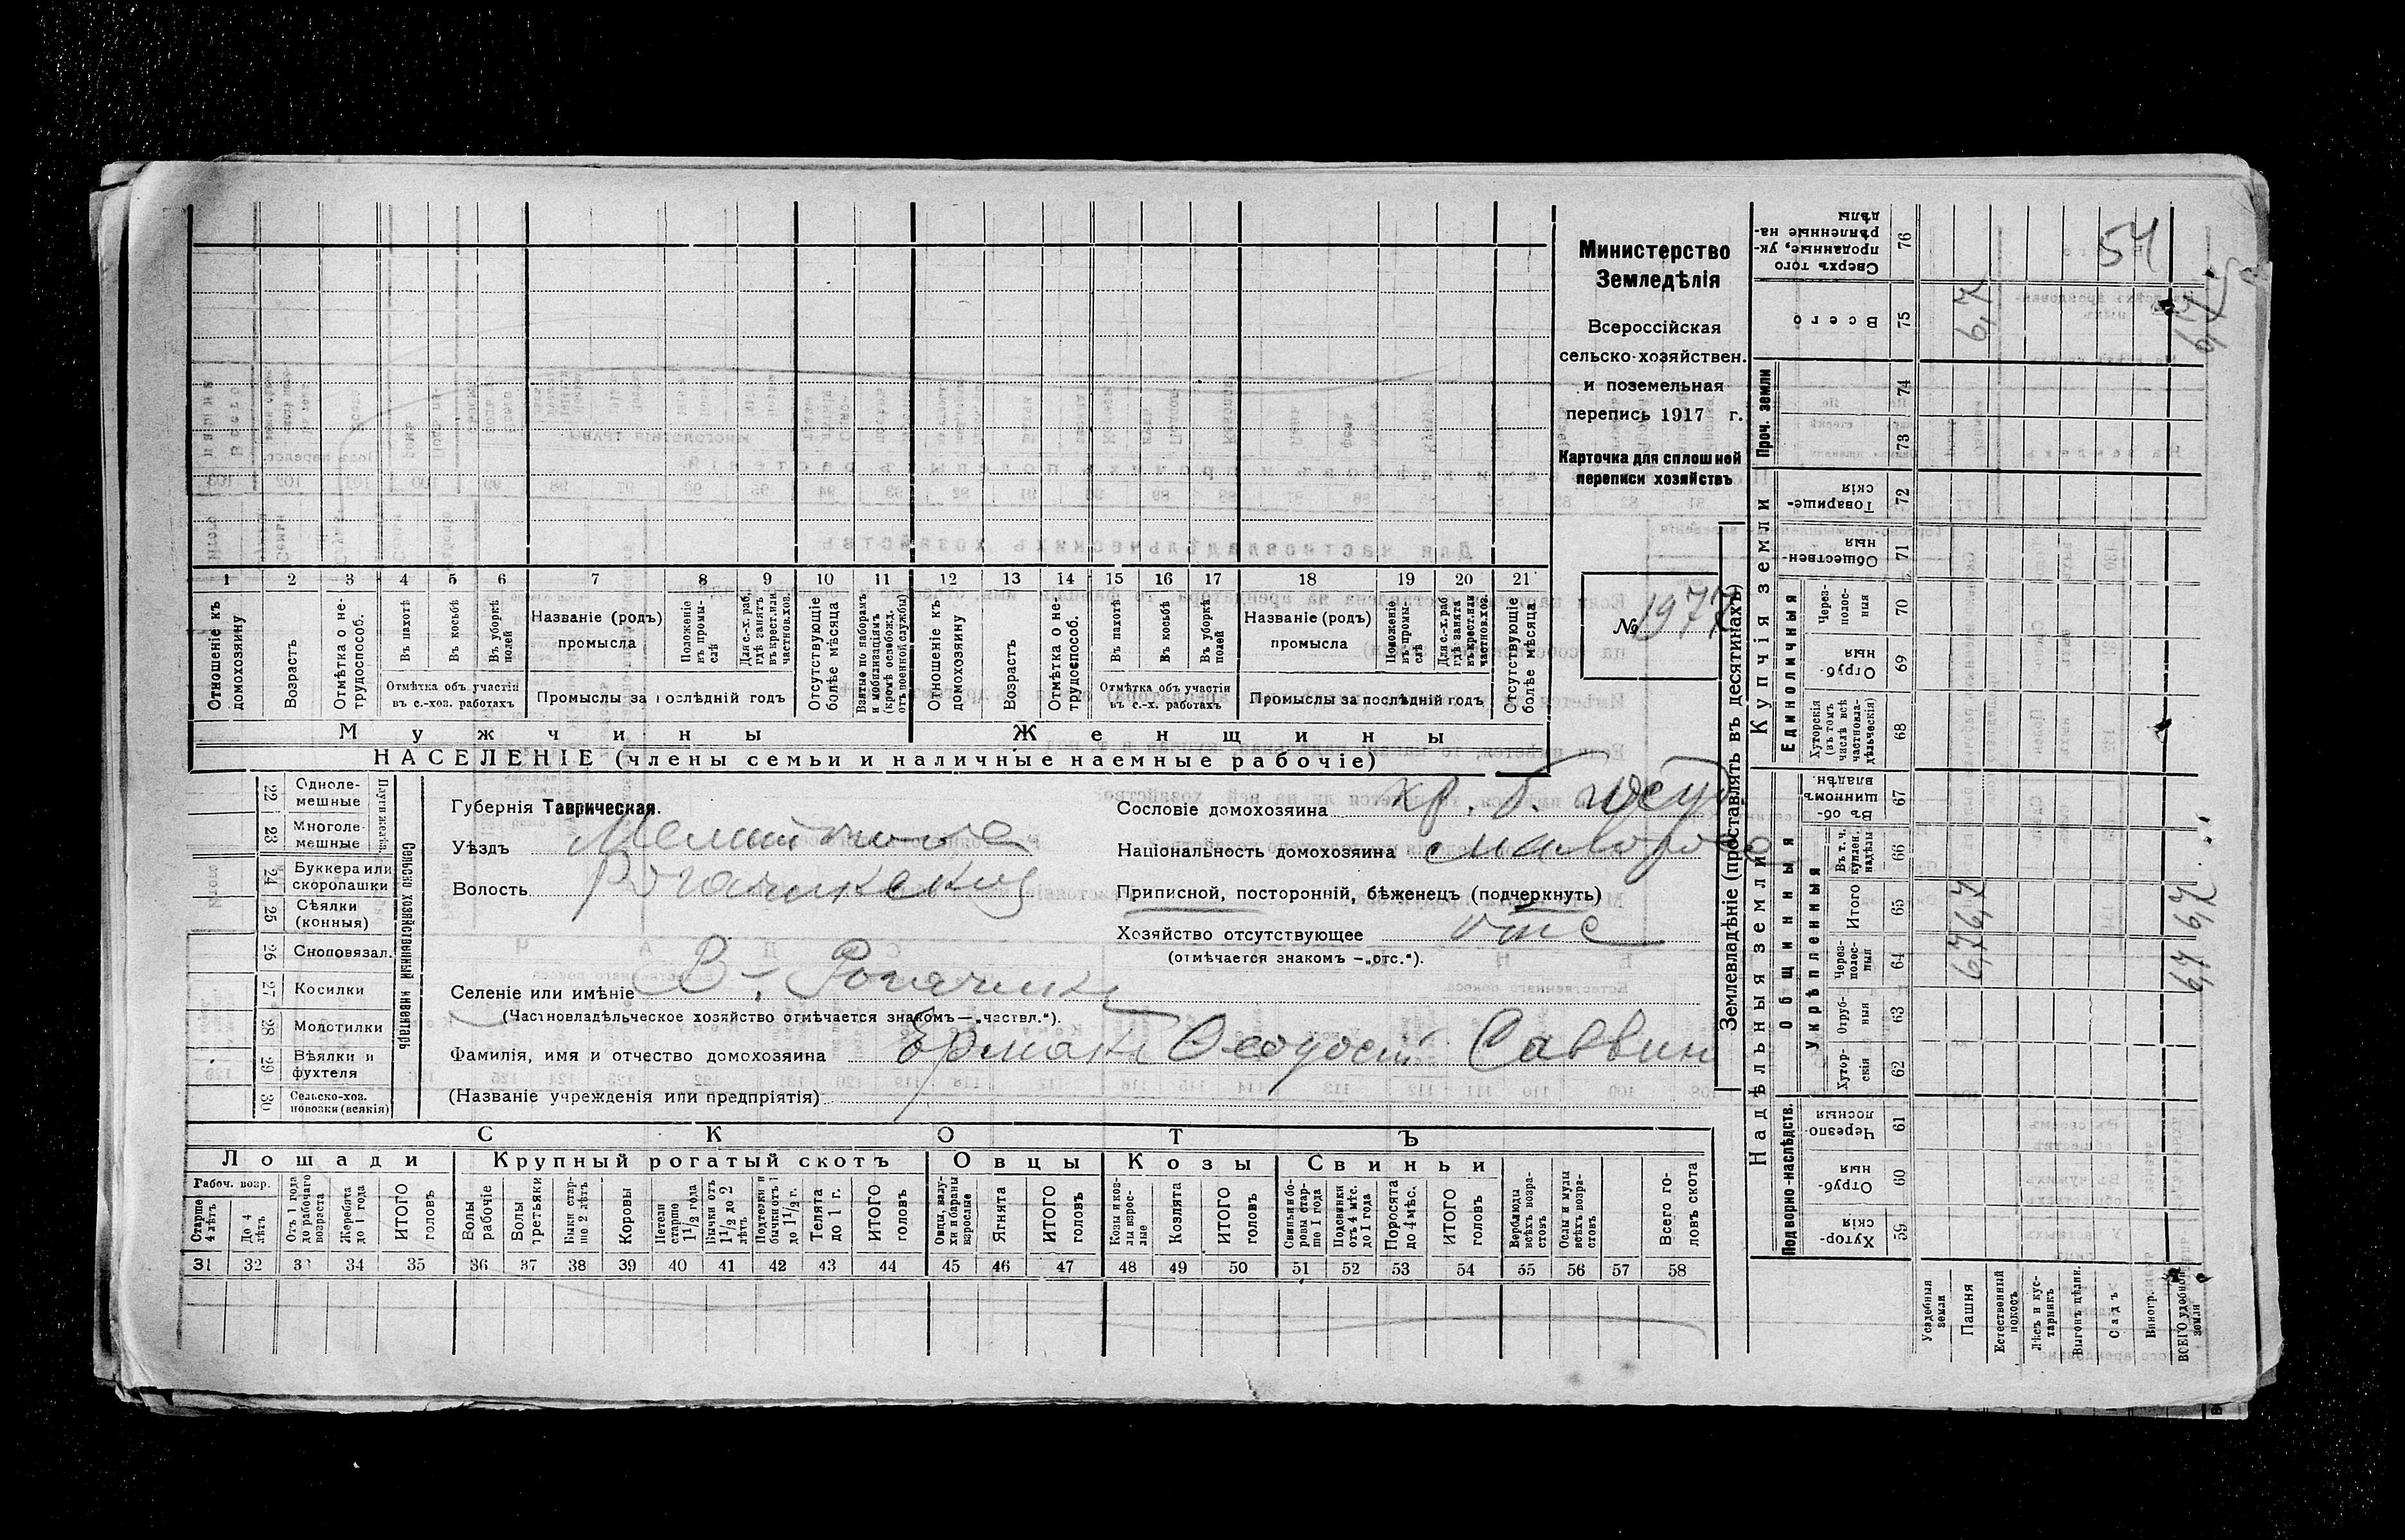 Министерство
Земледѣлія
Всероссійская
сельско-хозяйствен.
и поземельная
перепись 1917 г.
Карточка для сплошной
переписи хозяйствъ
№ 1977
54
1 2 3 4 5 6 7 8 9 10 11 12 13 14 15 16 17 18 19 20 21
Отношеніе къ домохозяину
Возрастъ
Отмѣтка о не-трудоспособ.
Въ пахотѣ
Въ косьбѣ
Въ уборкѣ полей
Отмѣтка объ участіи въ с.-хоз. работахъ
Названіе (родъ) промысла
Положеніе въ промы-слѣ
Для с.-х. раб. гдѣ занятъ въ крест. или частновл. хоз.
Промыслы за послѣдній годъ
Отсутствующіе болѣе мѣсяца
Взятые по наборамъ и мобилизаціямъ (кромѣ освобожд. отъ военной службы)
Отношеніе къ домохозяину
Возрастъ
Отмѣтка о не-трудоспособ.
Въ пахотѣ
Въ косьбѣ
Въ уборкѣ полей
Отмѣтка объ участіи въ с.-х. работахъ
Названіе (родъ) промысла
Положеніе въ промы-слѣ
Для с.-х. раб. гдѣ занята въ крест. или частновл. хоз.
Промыслы за послѣдній годъ
Отсутствующіе болѣе мѣсяца
Мужчины Женщины
НАСЕЛЕНІЕ (члены семьи и наличные наемные рабочіе)
Сельско хозяйственный инвентарь
22 Одноле-мешные
23 Многоле-мешные
24 Буккера или скоропашки
25 Сѣялки (конныя)
26 Сноповязал.
27 Косилки
28 Молотилки
29 Вѣялки и фухтеля
30 Сельско-хоз. повозки (всякія)
Губернія Таврическая.
Уѣздъ
Волость Рогачикская
Селеніе или имѣніе В-. Рогачикъ
(Частновладѣльческое хозяйство отмѣчается знакомъ—„частвл.“).
Фамилія, имя и отчество домохозяина Ермакъ Феодосій Саввин
(Названіе учрежденія или предпріятія)
Сословіе домохозяина кр. б. госуд
Національность домохозяина малоросс
Приписной, посторонній, бѣженецъ (подчеркнуть)
Хозяйство отсутствующее отс
(отмѣчается знакомъ —„отс.“).
СКОТЪ
Лошади Крупный рогатый скотъ Овцы Козы Свиньи
Рабоч. возр.
Старше 4 лѣтъ
До 4 лѣтъ
Отъ 1 года до рабочаго возраста
Жеребята до 1 года
ИТОГО головъ
Волы рабочіе
Волы третьяки
Быки стар-ше 2 лѣтъ
Коровы
Нетели старше 1½ года
Бычки отъ 1½ до 2 лѣтъ
Подтелки и бычки отъ 1 до 1½ г.
Телята до 1 г.
ИТОГО головъ
Овцы, валу-хи и бараны взрослые
Ягнята
ИТОГО головъ
Козы и коз-лы взрос-лые
Козлята
ИТОГО головъ
Свиньи и бо-ровы стар-ше 1 года
Подсвинки отъ 4 мѣс. до 1 года
Поросята до 4 мѣс.
ИТОГО головъ
Верблюды всѣхъ возра-стовъ
Ослы и мулы всѣхъ возра-стовъ
Всего го-ловъ скота
31 32 33 34 35 36 37 38 39 40 41 42 43 44 45 46 47 48 49 50 51 52 53 54 55 56 57 58
Землевладѣніе (проставлять въ десятинахъ)
Надѣльныя земли Купчія земли
Подворно-наслѣдств.
Общинныя
Укрѣпленныя
Единоличныя
Проч. земли
59 Хутор-скія
60 Отруб-ныя
61 Черезпо-лосныя
62 Хутор-скія
63 Отруб-ныя
64 Через-полос-ныя 6,7 6,7
65 Итого 6,7 6,7
66 Въ т. ч. куплен. надѣлы
67 Въ об-щинномъ владѣн.
68 Хуторскія (въ томъ числѣ всѣ частновла-дѣльческія)
69 Отруб-ныя
70 Через-полос-ныя
71 Обществен-ныя
72 Товарище-скія
73
74
75 Всего 6,7 6,7
76 Сверхъ того проданные, ук-рѣпленные на-дѣлы
Усадебныя земли
Пашня
Естественный покосъ
Лѣсъ и кус-тарникъ
Выгонъ цѣлин.
Садъ
Виногр.
ВСЕГО удобной земли